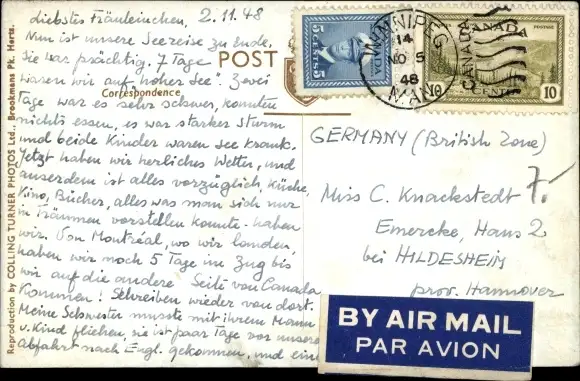 diebstes Fräuleinchen, 2.11.48
Nun ist unsere Seereise zu Ende,
sie war prächtig! 7 Tage
waren wir „auf hoher See“. Zwei
Tage war es sehr schwer, konnten
nichts essen, es war starker Sturm
und beide Kinder waren see krank.
Jetzt haben wir herliches Wetter, und
ausserdem ist alles vorzüglich, Küche,
Kino, Bücher, alles was man sich nur
in Träumen vorstellen konnte – haben
wir. Von Montréal, wo wir landen,
haben wir noch 5 Tage im Zug bis
wir auf die andere Seite von Canada
kommen! Schreiben wieder von dort.
Meine Schwester musste mit ihrem Mann
u. Kind fliehen, sie ist paar Tage vor unserer
abfahrt nach Engl. gekommen, und eine
POST
Correspondence
Reproduction by COLLING TURNER PHOTOS Ltd., Brookmans Pk. Herts.
5 CENTS 5
CANADA
WINNIPEG
14
NO 5
48
MAN.
CANADA
POSTAGE
10 CENTS 10
GERMANY (British Zone)
Miss C. Knackstedt
7.-
Emercke, Haus 2
bei HILDESHEIM
prov. Hannover
BY AIR MAIL
PAR AVION